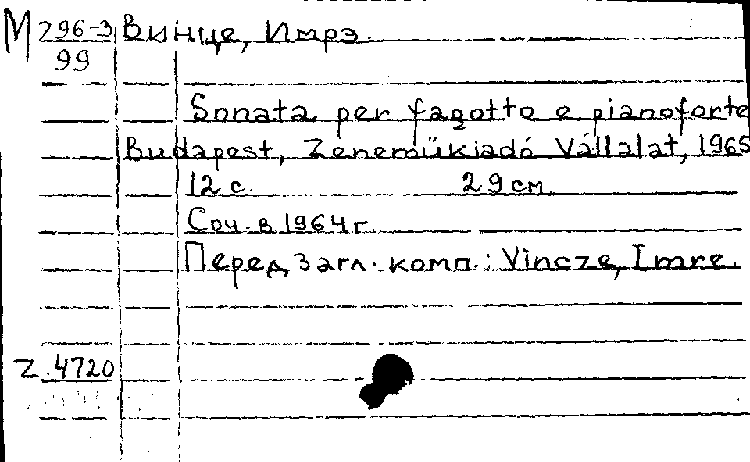 М 296-3 Винце, Имрэ.
99
Sonata per fagotto e pianoforte
Budapest, Zeneműkiadó Vállalat, 1965
12 с. 29 см.
Соч. в 1964 г.
Перед загл. комп.: Vincze, Imre.
Z. 4720